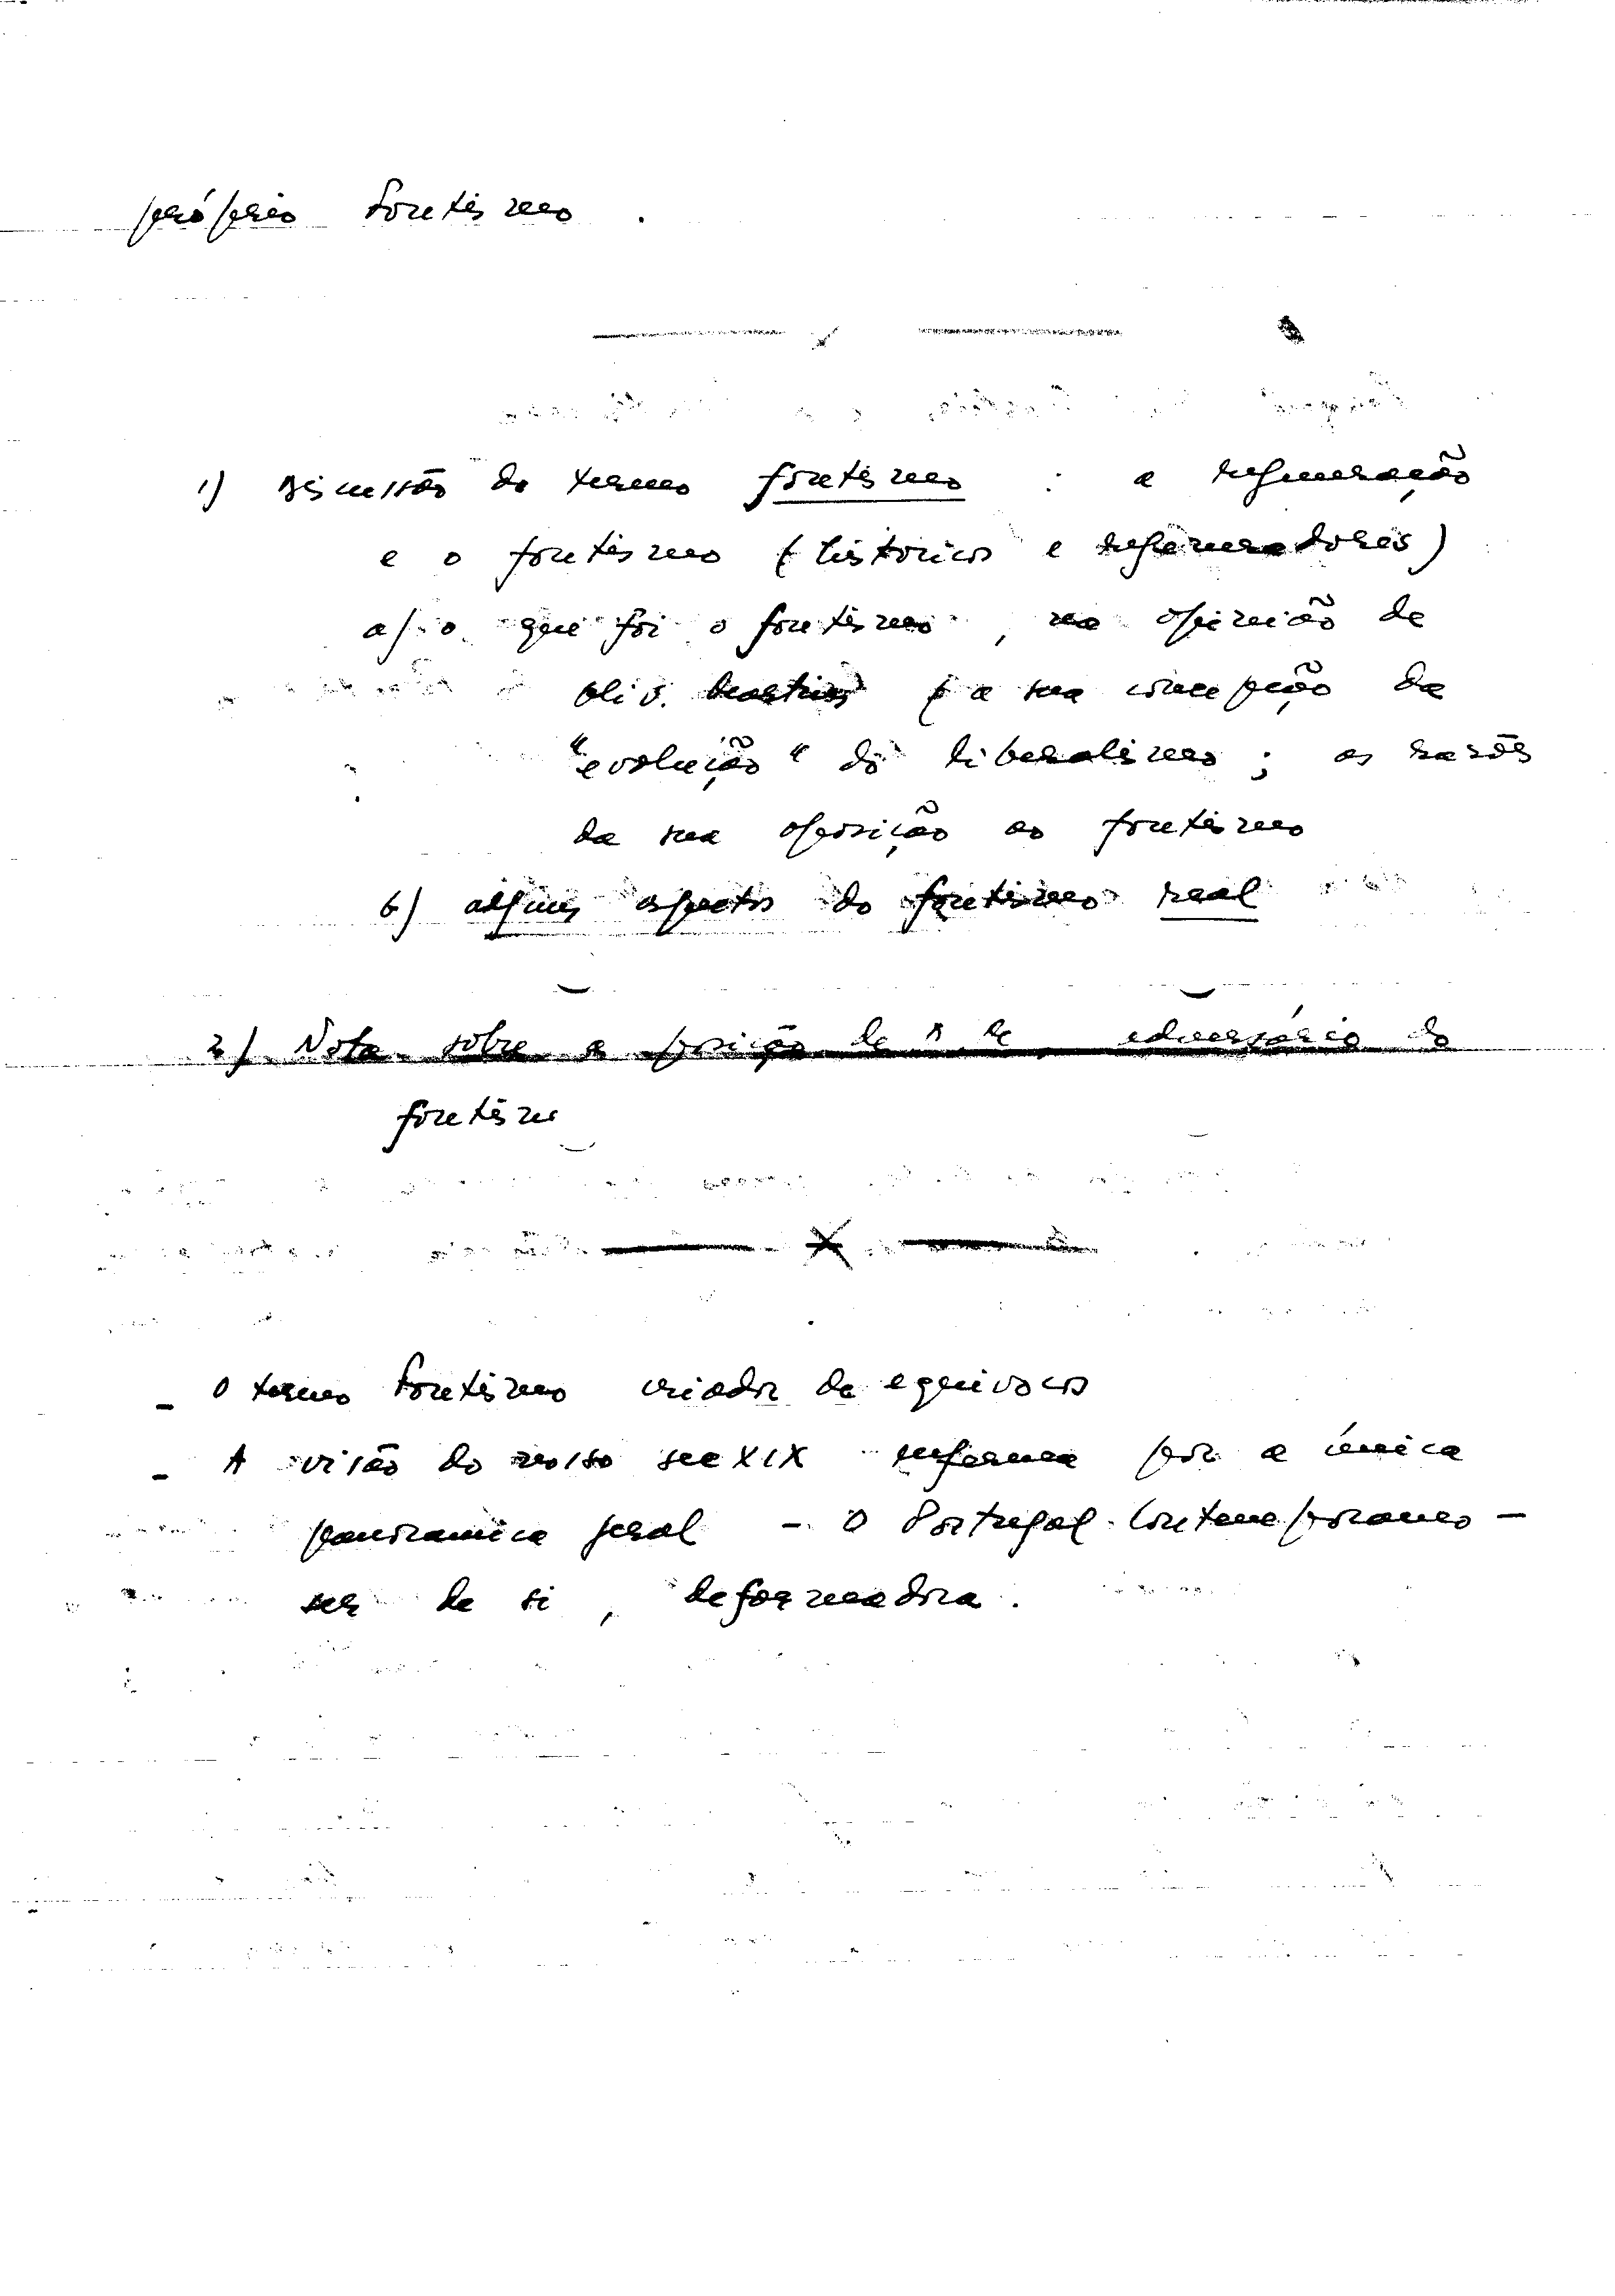 próprio Fontismo.
1) Discussão do termo fontismo : a regeneração
e o fontismo (históricos e regeneradores)
a) o que foi o fontismo, na opinião de
Oliv. Martins (a sua concepção da
"evolução" do liberalismo; as razões
da sua oposição ao fontismo
b) alguns aspectos do fontismo real
2) Nota sobre a posição de A de adversário do
fontism
- O termo Fontismo criador de equivocos
- A visão do nosso sec XIX enferma por a única
panoramica geral - O Portugal Contemporaneo -
ser de si, deformadora.